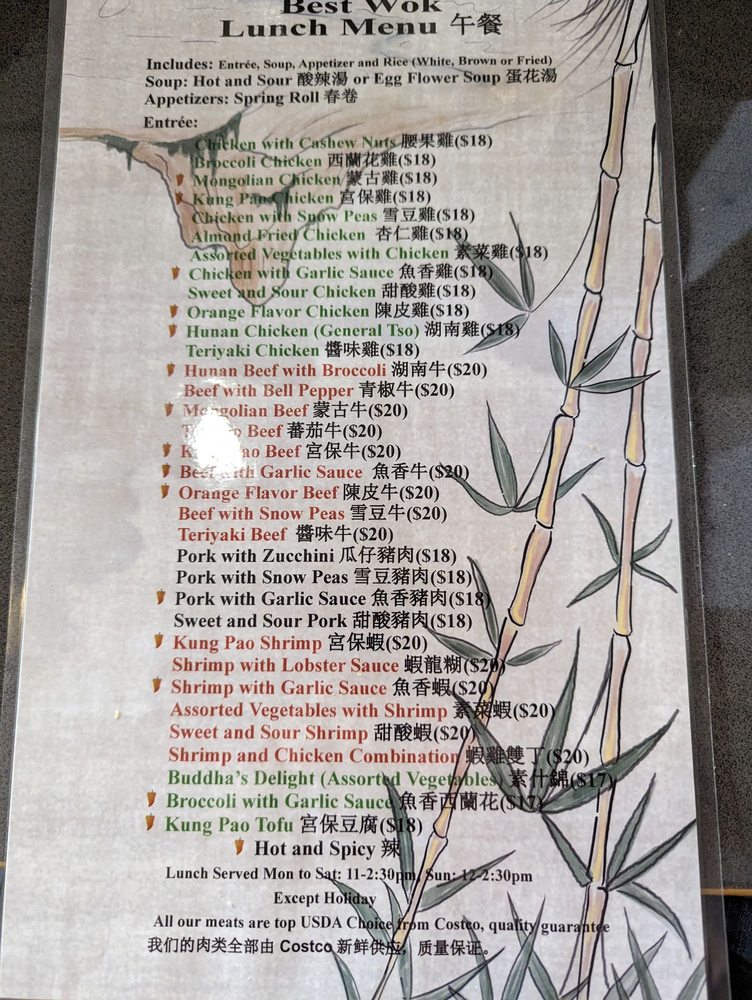 Best Wok
Lunch Menu 午餐
Includes: Entrée, Soup, Appetizer and Rice (White, Brown or Fried)
Soup: Hot and Sour 酸辣湯 or Egg Flower Soup 蛋花湯
Appetizers: Spring Roll 春卷
Entrée:
Chicken with Cashew Nuts 腰果雞($18)
Broccoli Chicken 西蘭花雞($18)
Mongolian Chicken 蒙古雞($18)
Kung Pao Chicken 宮保雞($18)
Chicken with Snow Peas 雪豆雞($18)
Almond Fried Chicken 杏仁雞($18)
Assorted Vegetables with Chicken 素菜雞($18)
Chicken with Garlic Sauce 魚香雞($18)
Sweet and Sour Chicken 甜酸雞($18)
Orange Flavor Chicken 陳皮雞($18)
Hunan Chicken (General Tso) 湖南雞($18)
Teriyaki Chicken 醬味雞($18)
Hunan Beef with Broccoli 湖南牛($20)
Beef with Bell Pepper 青椒牛($20)
Mongolian Beef 蒙古牛($20)
Beef 蕃茄牛($20)
Kung Pao Beef 宮保牛($20)
Beef with Garlic Sauce 魚香牛($20)
Orange Flavor Beef 陳皮牛($20)
Beef with Snow Peas 雪豆牛($20)
Teriyaki Beef 醬味牛($20)
Pork with Zucchini 瓜仔豬肉($18)
Pork with Snow Peas 雪豆豬肉($18)
Pork with Garlic Sauce 魚香豬肉($18)
Sweet and Sour Pork 甜酸豬肉($18)
Kung Pao Shrimp 宮保蝦($20)
Shrimp with Lobster Sauce 蝦龍糊($20)
Shrimp with Garlic Sauce 魚香蝦($20)
Assorted Vegetables with Shrimp 素菜蝦($20)
Sweet and Sour Shrimp 甜酸蝦($20)
Shrimp and Chicken Combination 蝦雞雙丁($20)
Buddha's Delight (Assorted Vegetables) 素什錦($17)
Broccoli with Garlic Sauce 魚香西蘭花($17)
Kung Pao Tofu 宮保豆腐($18)
Hot and Spicy 辣
Lunch Served Mon to Sat: 11-2:30pm, Sun: 12-2:30pm
Except Holiday
All our meats are top USDA Choice from Costco, quality guarantee
我们的肉类全部由 Costco 新鲜供应，质量保证。